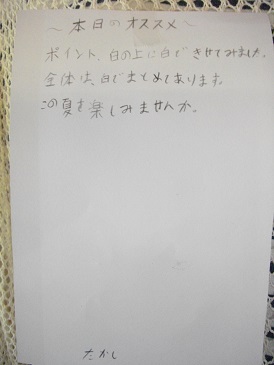 ～本日のオススメ～
ポイント、白の上に白できせてみました。
全体は、白でまとめてあります。
この夏を楽しみませんか。
たかし